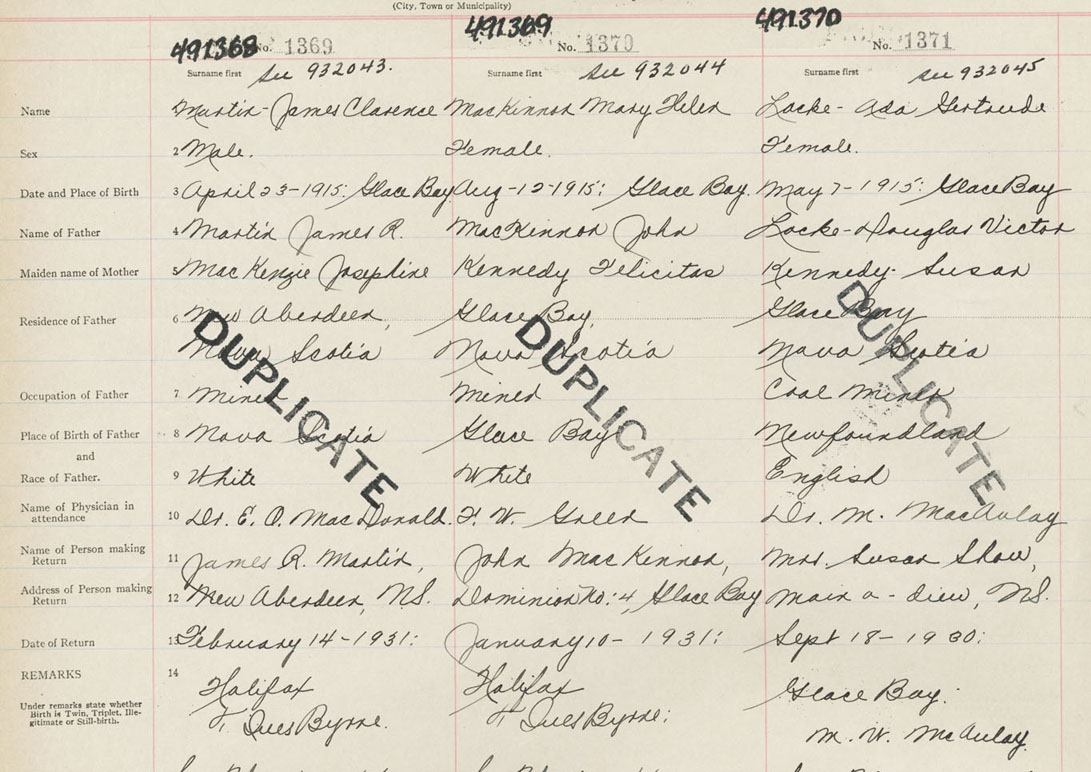 (City, Town or Municipality)
491368 No. 1369 491369 No. 1370 491370 No. 1371
Surname first See 932043. Surname first See 932044 Surname first See 932045
Name 1 Martin- James Clarence MacKinnon Mary Helen Locke- Ada Gertrude
Sex 2 Male. Female. Female.
Date and Place of Birth 3 April 23-1915: Glace Bay Aug-12-1915: Glace Bay. May 7-1915: Glace Bay
Name of Father 4 Martin James R. MacKinnon John Locke-Douglas Victor
Maiden name of Mother 5 MacKenzie Josephine Kennedy Felicitas Kennedy- Susan
Residence of Father 6 New Aberdeen, Glace Bay, Glace Bay
Nova Scotia Nova Scotia Nova Scotia
DUPLICATE DUPLICATE DUPLICATE
Occupation of Father 7 Miner Miner Coal Miner
Place of Birth of Father 8 Nova Scotia Glace Bay Newfoundland
and
Race of Father. 9 White White English
Name of Physician in attendance 10 Dr. E. O. MacDonald. F. W. Green Dr. M. MacAulay
Name of Person making Return 11 James R. Martin, John MacKinnon, Mrs. Susan Show,
Address of Person making Return 12 New Aberdeen, N.S. Dominion No: 4, Glace Bay Main a-dieu, N.S.
Date of Return 13 February 14-1931: January 10- 1931: Sept 18-1930:
REMARKS 14 Halifax Halifax Glace Bay.
Under remarks state whether Birth is Twin, Triplet, Ille-
gitimate or Still-birth.
Byrne. Byrne: M. W. McAulay.